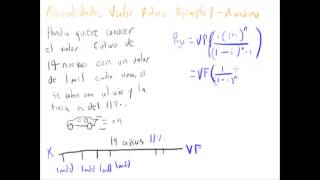 Anualidades Valor Futuro Ejemplo 1 - A mano
Honda quiere conocer
el valor futuro de
19 nuevas con un valor
de 1 mil cada una, si
se abona al año y la
tasa es del 11%.
Pago = VP(i(1-i)^n/(1-i)^n-1)
= VF(1/(1-i)^n
19 años 11% VF
X
1mdd 1mdd 1mdd 1mdd